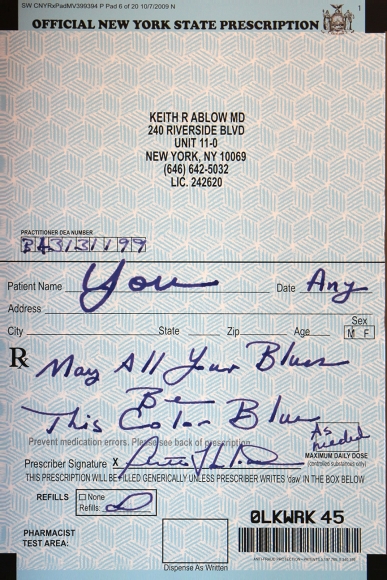 SW CNYRxPadMV399394 P Pad 6 of 20 10/7/2009 N
1
OFFICIAL NEW YORK STATE PRESCRIPTION
KEITH R ABLOW MD
240 RIVERSIDE BLVD
UNIT 11-0
NEW YORK, NY 10069
(646) 642-5032
LIC. 242620
PRACTITIONER DEA NUMBER
Patient Name You Date Any
Address
City State Zip Age Sex M F
Rx May All Your Blues
Be
This Color Blue
As needed
Prevent medication errors. Please see back of prescription.
MAXIMUM DAILY DOSE
(controlled substances only)
Prescriber Signature X
THIS PRESCRIPTION WILL BE FILLED GENERICALLY UNLESS PRESCRIBER WRITES 'daw' IN THE BOX BELOW
REFILLS None
Refills:
0LKWRK 45
PHARMACIST
TEST AREA:
Dispense As Written